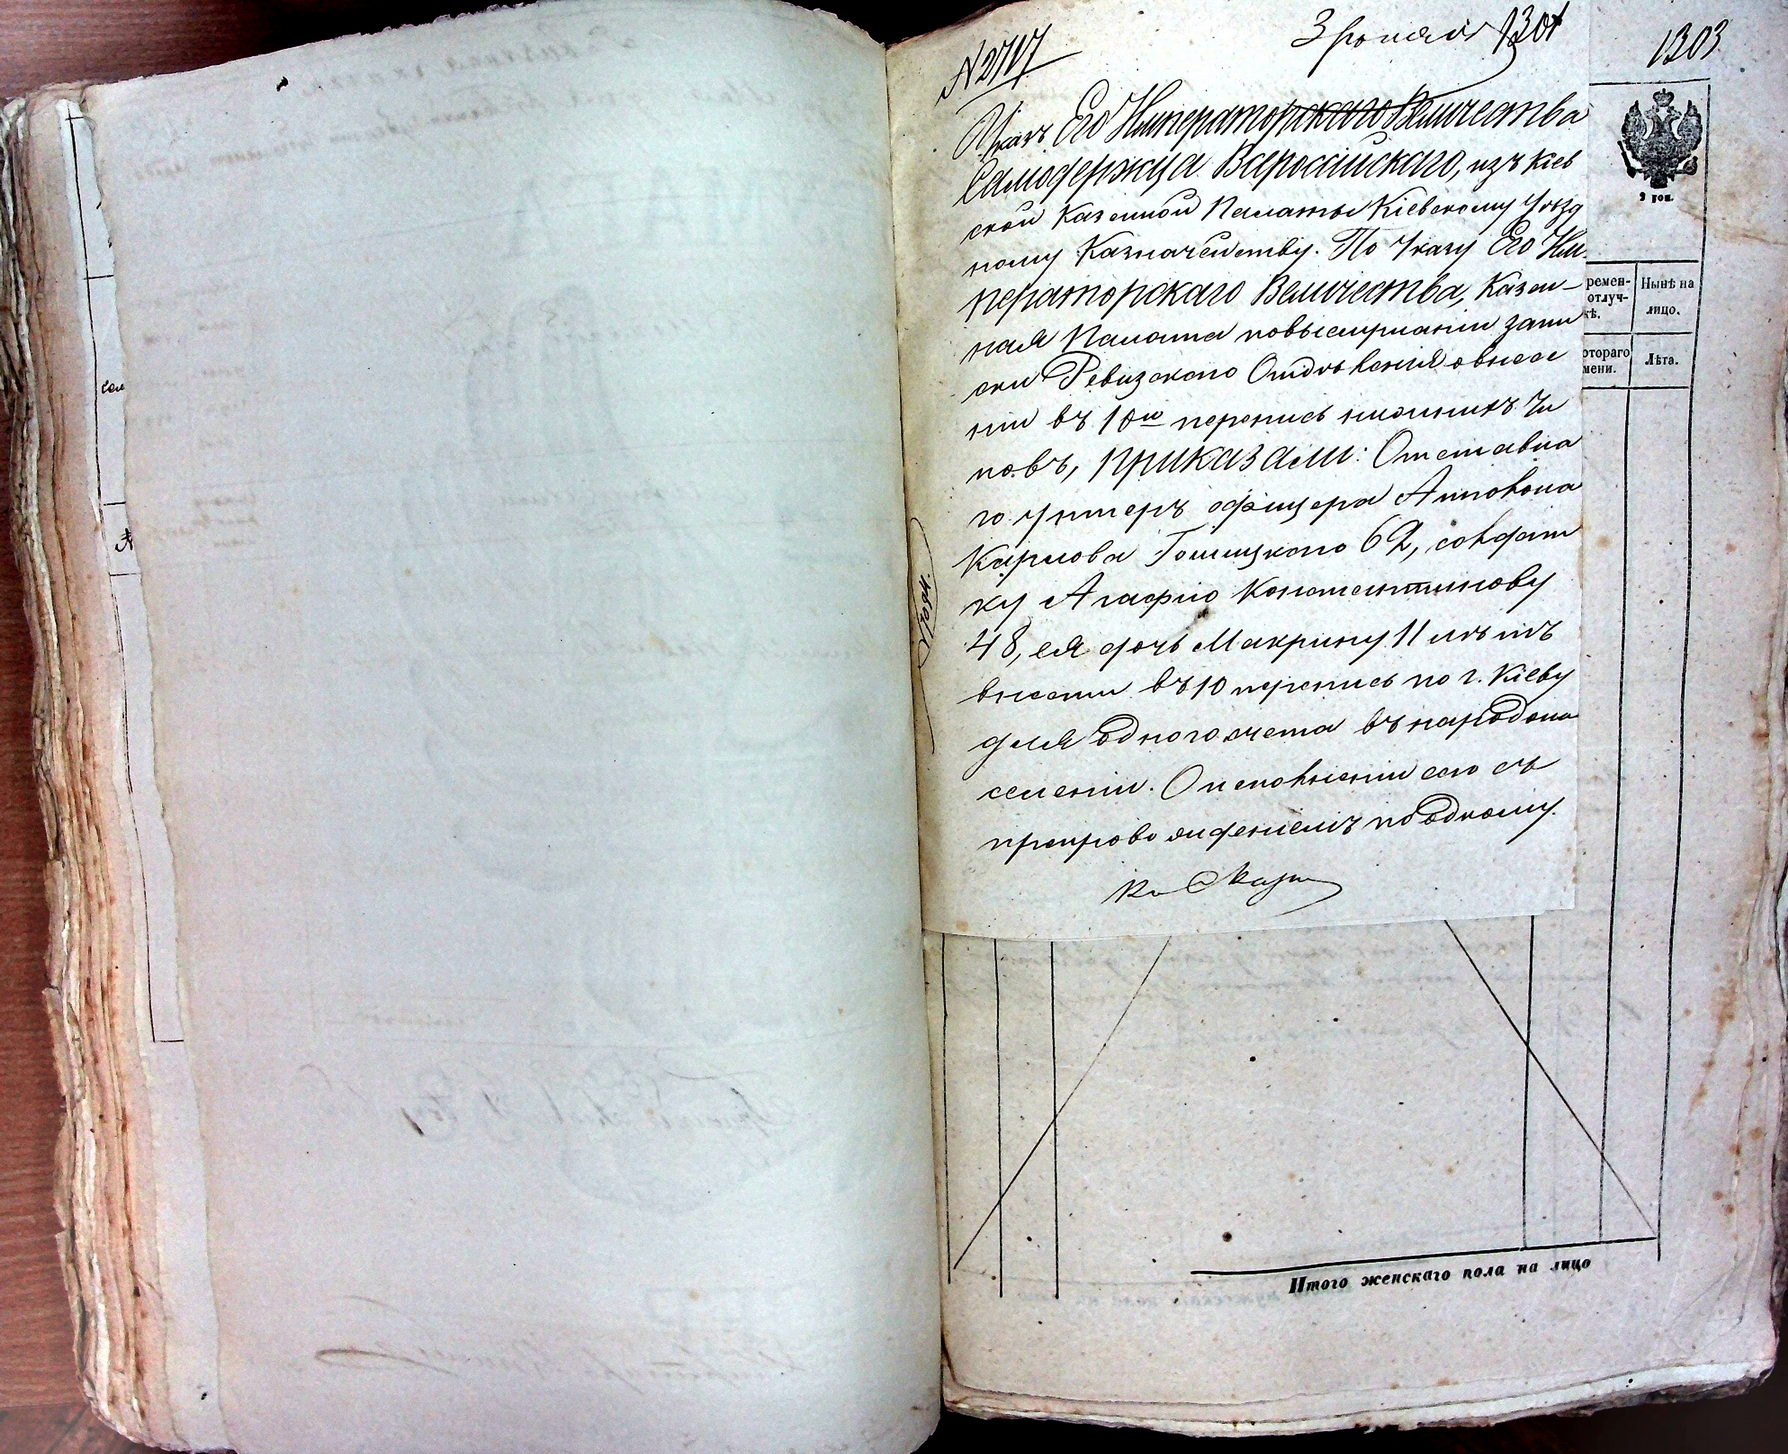 № 2717
1301
1303
Указъ Его Императорскаго Величества
Самодержца Всероссійскаго, изъ Кіев
ской Казенной Палаты Кіевскому Уѣзд
ному Казначейству. По Указу Его Им-
ператорскаго Величества, Казен-
ная Палата по выслушаніи запи
ски Ревизскаго Отдѣленія о внесе
ніи въ 10ю перепись нижнихъ чи
новъ, приказали: Отставна
го унтеръ офицера Антона
Карлова 62, солдат
ку Агафію Константинову
48, ея дочь Макрину 11 лѣтъ
внести въ 10 перепись по г. Кіеву
для одного счета въ народона
селеніи. О исполненіи сего съ
препровожденіемъ по одному
2 коп.
ремен-
отлуч-
кѣ.
Нынѣ на
лицо.
отораго
мени.
Лѣта.
Итого женскаго пола на лицо